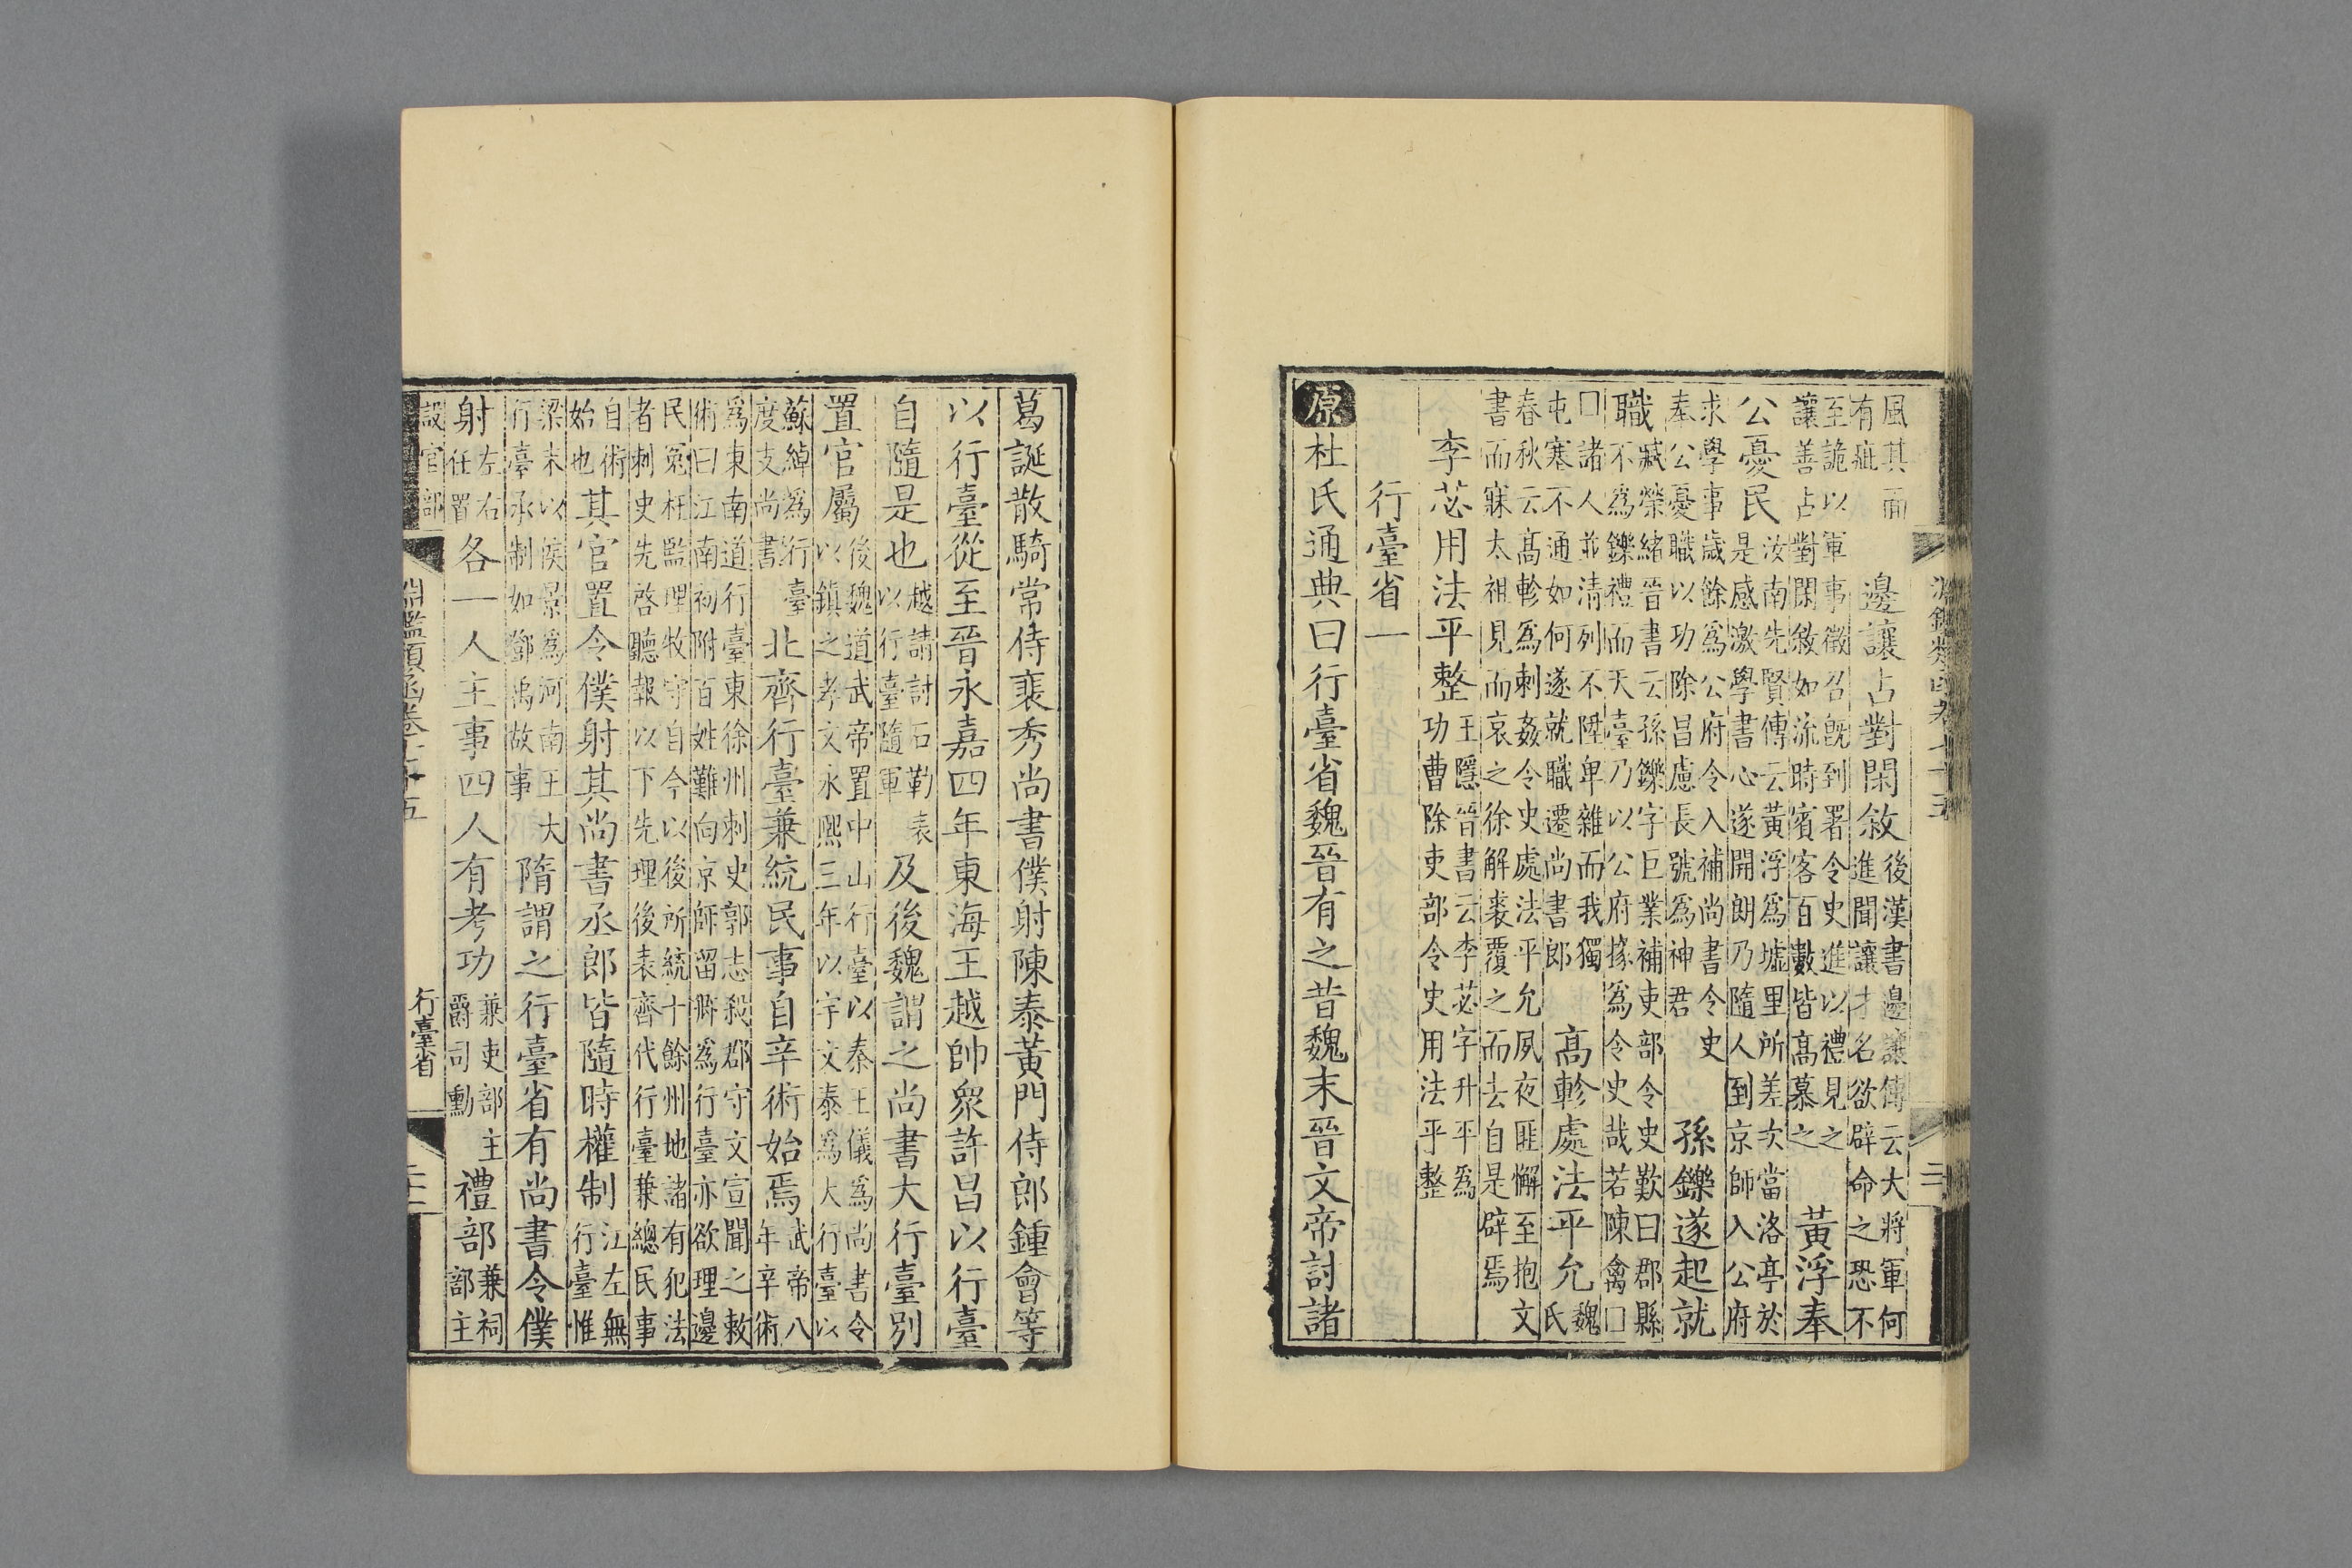 風其面
有疵
邊讓占對閑敘
後漢書邊讓傳云大將軍何
進聞讓才名欲辟命之恐不
至詭以軍事徵召既到署令史進以禮見之
讓善占對閑敘如流時賓客百數皆高慕之
黃浮奉
公憂民
汝南先賢傳云黃浮爲墟里所差次當洛亭於
是感激學書心遂開朗乃隨人到京師入公府
求學事歲餘爲公府令入補尚書令史
奉公憂職以功除昌慮長號爲神君
孫鑠遂起就
職
臧榮緒晉書云孫鑠字巨業補吏部令史歎曰郡縣
不爲鑠禮而天臺乃以公府掾爲令史哉若陳禽囗
囗諸人並清列不陞卑雜而我獨
屯蹇不通如何遂就職遷尚書郎
高軫處法平允
魏
氏
春秋云高軫爲刺姦令史處法平允夙夜匪懈至抱文
書而寐太祖見而哀之徐解裘覆之而去自是辟焉
李苾用法平整
王隱晉書云李苾字升平爲
功曹除吏部令史用法平整
行臺省一
原杜氏通典曰行臺省魏晉有之昔魏末晉文帝討諸
葛誕散騎常侍裴秀尚書僕射陳泰黃門侍郎鍾會等
以行臺從至晉永嘉四年東海王越帥衆許昌以行臺
自隨是也
越請討石勒表
以行臺隨軍
及後魏謂之尚書大行臺別
置官屬
後魏道武帝置中山行臺以秦王儀爲尚書令
以鎮之孝文永熙三年以宇文泰爲大行臺以
蘇綽爲行臺
度支尚書
北齊行臺兼統民事自辛術始焉
武帝八
年辛術
爲東南道行臺東徐州刺史郭志殺郡守文宣聞之敕
術曰江南初附百姓難向京師留卿爲行臺亦欲理邊
民冤枉監理牧守自今以後所統十餘州地諸有犯法
者刺史先啓聽報以下先理後表齊代行臺兼總民事
自術
始也
其官置令僕射其尚書丞郎皆隨時權制
江左無
行臺惟
梁末以侯景爲河南王大
行臺承制如鄧禹故事
隋謂之行臺省有尚書令僕
射
左右
任置
各一人主事四人有考功
兼吏部主
爵司勳
禮部
兼祠
部主
設官部
淵鑑類函卷七十五
行臺省